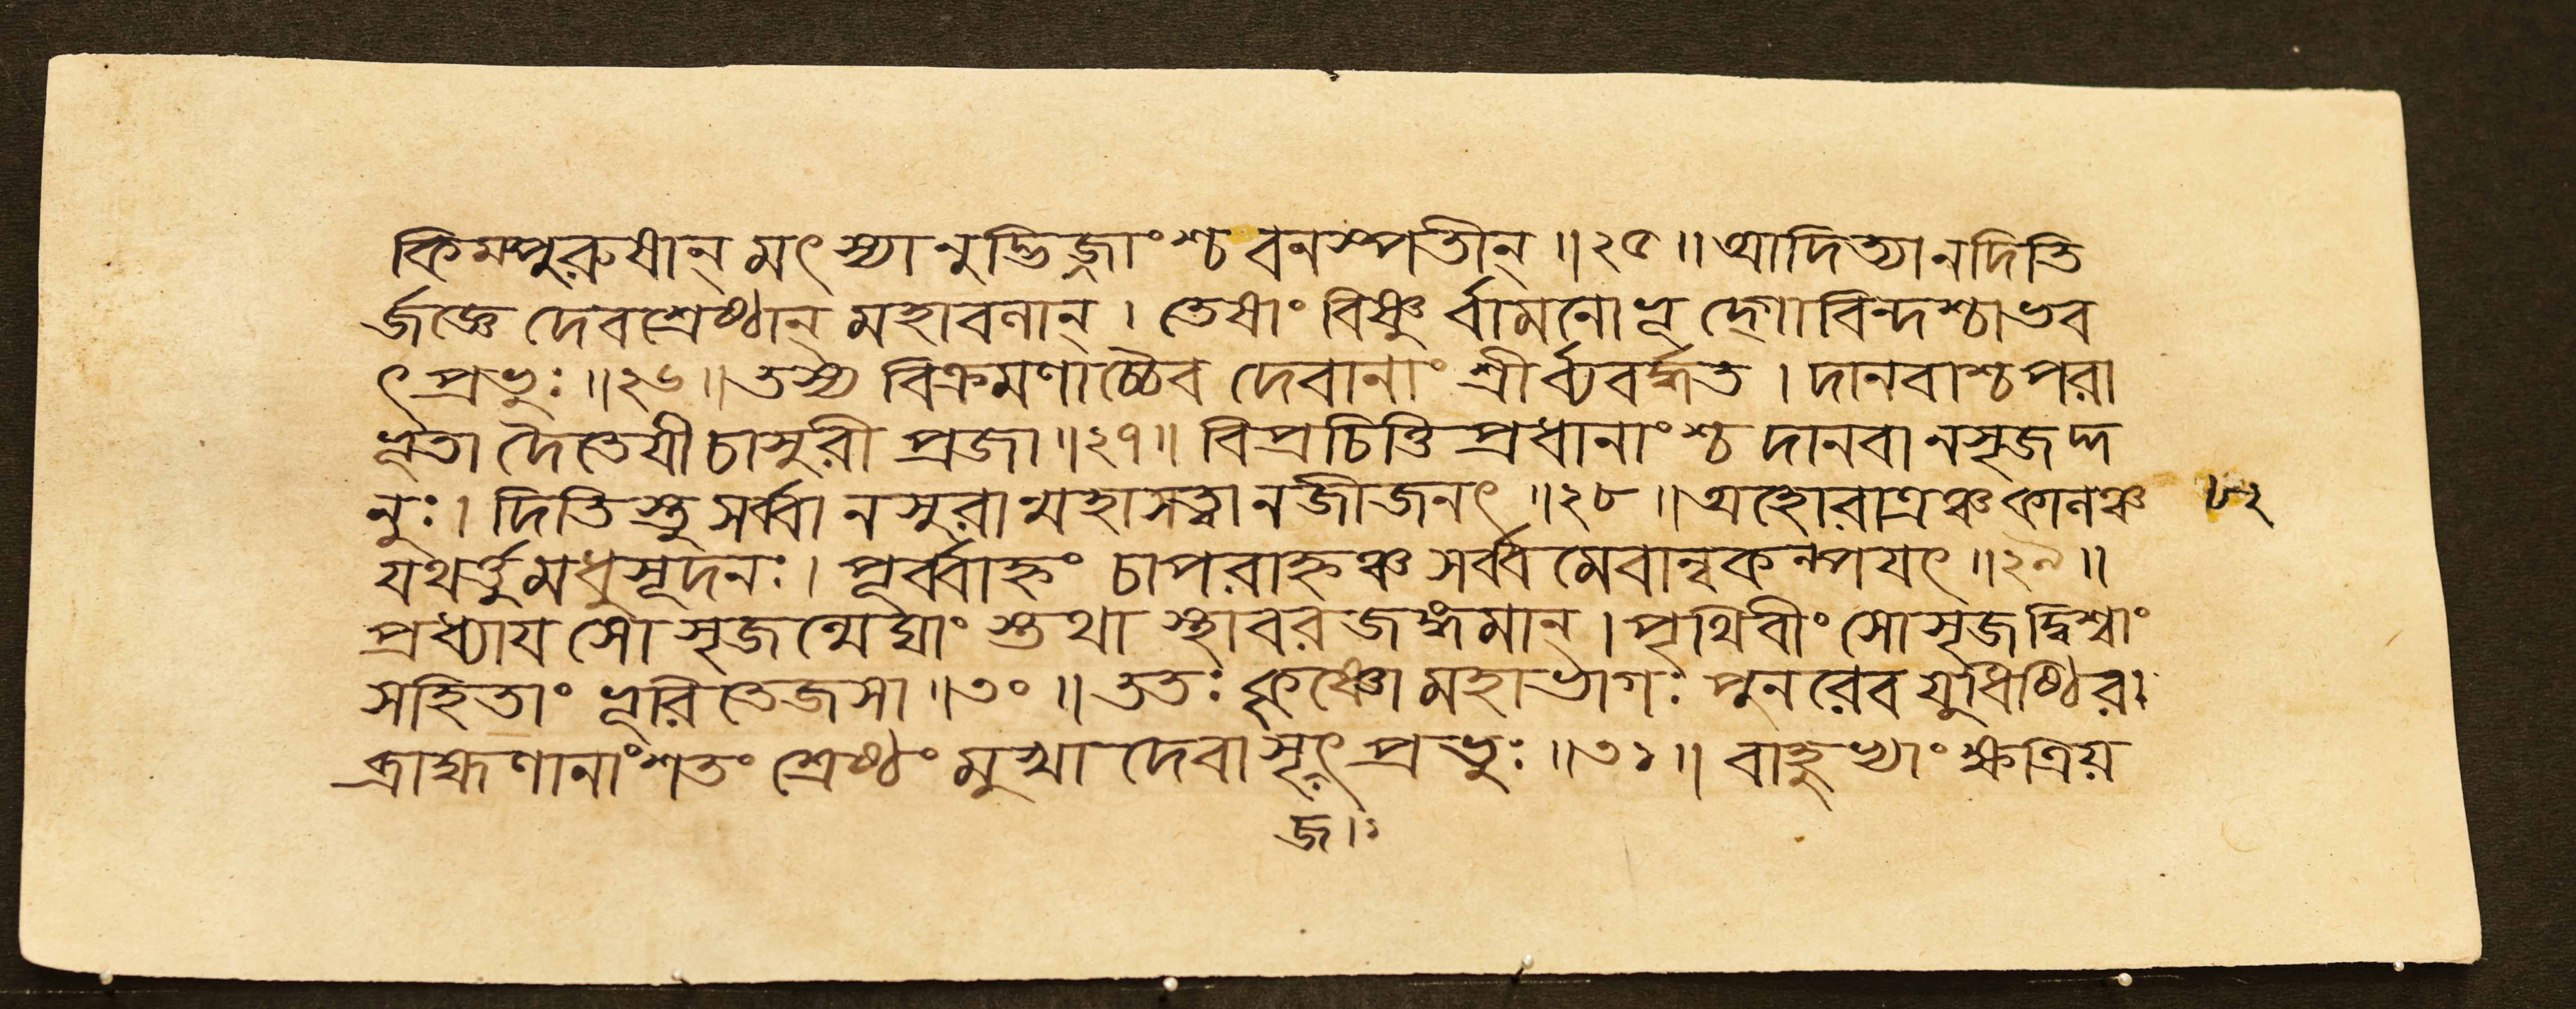 কিমপুরুষান্ মৎস্যানুদ্ভিজ্জাংশ্চ বনস্পতীন্ ॥২৫॥ আদিত্যানদিতি
র্জজ্ঞে দেবশ্রেষ্ঠান্ মহাবলান্ । তেষাং বিষ্ণুর্বামনোভূদ্গোবিন্দশ্চাভব
ৎ প্রভুঃ ॥২৬॥ তস্য বিক্রমণাচ্চৈব দেবানাং শ্রীর্ব্যবর্দ্ধত । দানবাশ্চ পরা
ভূতা দৈতেয়ী চাসুরী প্রজা ॥২৭॥ বিপ্রচিত্তি প্রধানাংশ্চ দানবানসৃজদ্দ
নুঃ । দিতিস্তু সর্ব্বানসুরান্মহাসত্ত্বানজীজনৎ ॥২৮॥ অহোরাত্রঞ্চ কালঞ্চ ৮২
যথর্ত্তু মধুসূদনঃ । পূর্ব্বাহ্নং চাপরাহ্নঞ্চ সর্ব্বমেবান্বকল্পয়ৎ ॥২৯॥
প্রধ্যায় সোসৃজন্মেঘাংস্তথা স্থাবরজঙ্গমান্ । পৃথিবীং সোসৃজদ্বিশ্বাং
সহিতাং ভূরিতেজসা ॥৩০॥ ততঃ কৃষ্ণো মহাভাগঃ পুনরেব যুধিষ্ঠিরঃ
ব্রাহ্মণানাং শতং শ্রেষ্ঠং মুখা দেবাসৃৎ প্রভুঃ ॥৩১॥ বাহুভ্যাং ক্ষত্রিয়
জ।১